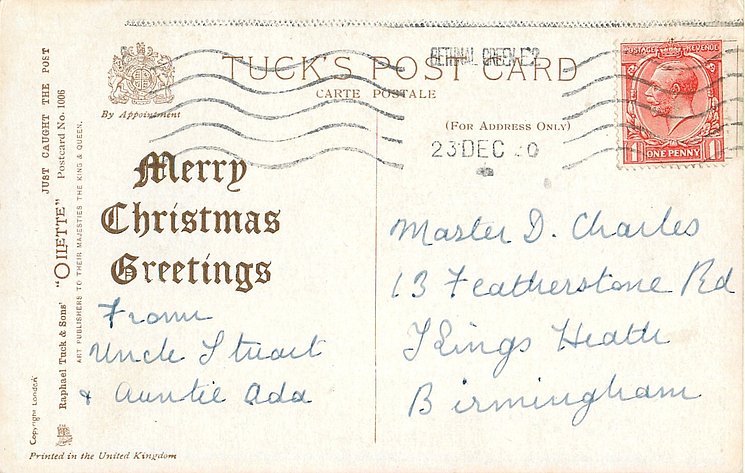 BETHNAL GREEN. E.2
TUCK'S POST CARD
CARTE POSTALE
By Appointment
(FOR ADDRESS ONLY)
23 DEC 30
POSTAGE REVENUE
1 ONE PENNY 1
Merry
Christmas
Greetings
From
Uncle Stuart
& Auntie Ada
Master D. Charles
13 Featherstone Rd
Kings Heath
Birmingham
JUST CAUGHT THE POST
Raphael Tuck & Sons' "OILETTE" Postcard No. 1006
ART PUBLISHERS TO THEIR MAJESTIES THE KING & QUEEN.
Copyright London
Printed in the United Kingdom